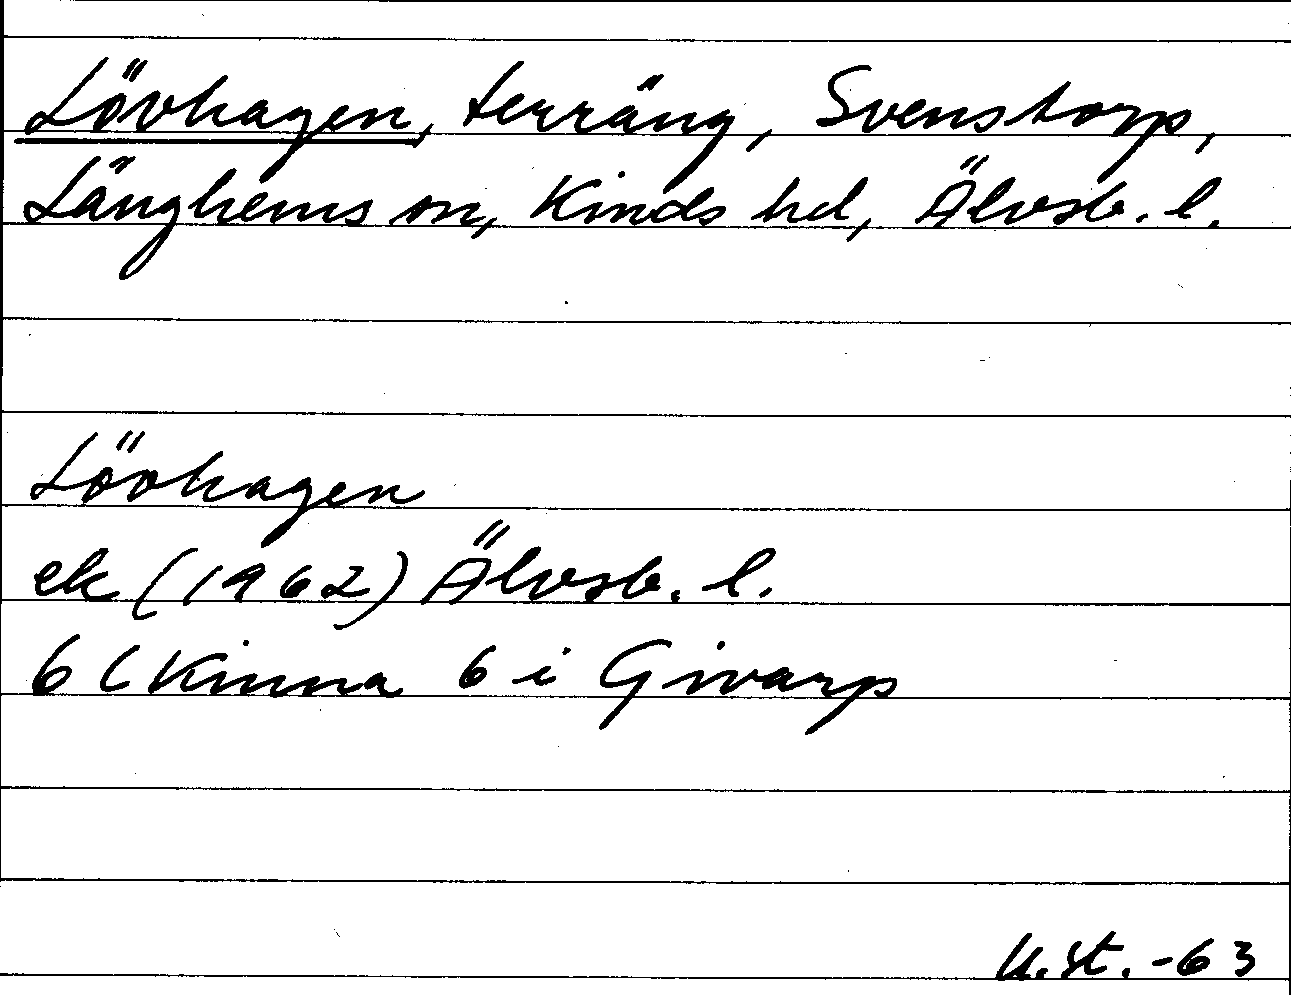 Lövhagen, terräng, Svenstorp,
Länghems sn, Kinds hd, Älvsb. l.
Lövhagen
ek (1962) Älvsb. l.
6 C Kinna 6 i Givarp
U.St. -63